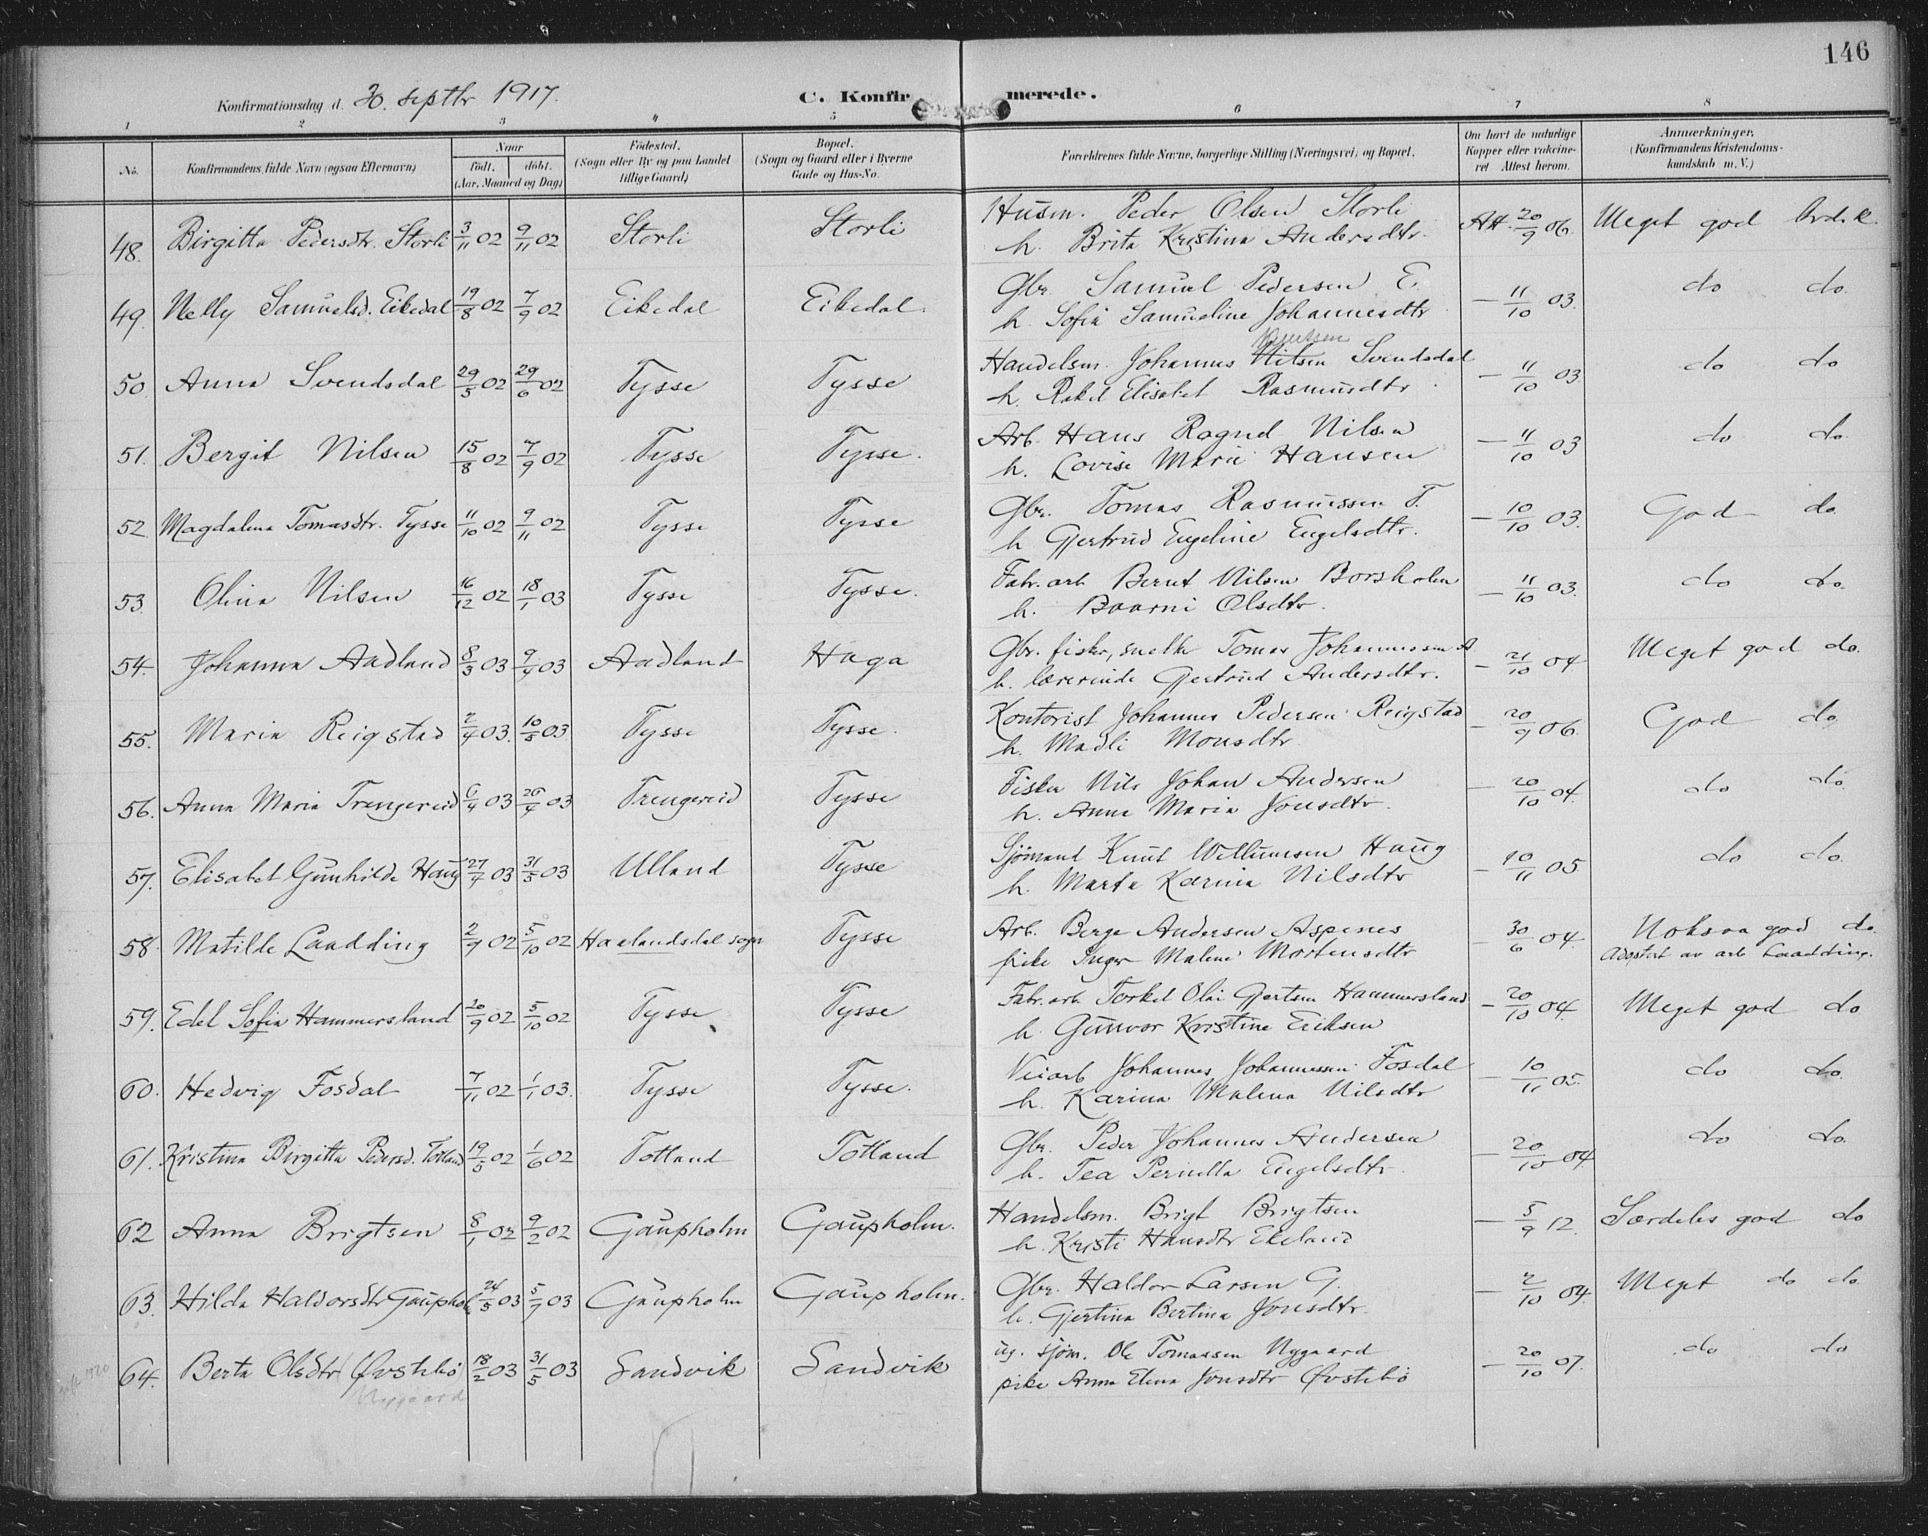 146
Konfirmationsdag d. 30. septbr 1917.
C. Konfirmerede.
1 2 3 4 5 6 7 8
No. Konfirmandens fulde Navn (ogsaa Efternavn) Naar født. døbt. (Aar, Maaned og Dag) Fødested. (Sogn eller By og paa Landet tillige Gaard) Bopæl. (Sogn og Gaard eller i Byerne Gade og Hus-No. Forældrenes fulde Navne, borgerlige Stilling (Næringsvei) og Bopæl. Om havt de naturlige Kopper eller vaccineret Attest herom. Anmærkninger. (Konfirmandens Kristendomskundskab m. V.)
48. Birgitta Pedersdtr. Storli 3/11 02 9/11 02 Storli Storli Husm. Peder Olsen Storli Att. 20/9 06. Meget god
h. Brita Kristina Andersdtr.
49. Nelly Samuelsd. Eikedal 19/8 02 7/9 02 Eikedal Eikedal. Gbr. Samuel Pedersen E. — 11/10 03. do do.
h. Sofia Samueline Johannesdtr
50. Anna Svendsdal 29/5 02 29/6 02 Tysse Tysse Handelsm. Johannes Nilsen Svendsdal — 11/10 03. do do
h. Rakel Elisabet Rasmusdtr
51. Bergit Nilsen 15/8 02 7/9 02 Tysse Tysse. Arb. Hans Ragnd Nilsen — 11/10 03 do do.
h. Lovise Marie Hansen
52 Magdalena Tomasdtr. Tysse 11/10 02 9/11 02 Tysse Tysse Gbr. Tomas Rasmussen T. — 10/10 03. God do.
h Gjertrud Engeline Engelsdtr.
53. Olina Nilsen 16/12 02 18/1 03 Tysse Tysse. Fabr. arb Bernt Nilsen Borsholm — 11/10 03. do do.
h. Baarni Olsdtr.
54. Johanna Aadland 8/3 03 9/4 03 Aadland Haga Gbr. fisker, snekk Tomas Johannessen A — 21/10 04 Meget god do.
h. lærerinde Gjertrud Andersdtr.
55. Maria Reigstad 2/4 03. 10/5 03 Tysse Tysse. Kontorist Johannes Pedersen Reigstad — 20/9 06. God do.
h. Madli Monsdtr.
56. Anna Maria Trengereid 6/4 03 26/4 03 Trengereid Tysse Fisker Nils Johan Andersen — 20/10 04. do do.
h. Anna Maria Jonsdtr.
57. Elisabet Gunhilde Haug 27/4 03 31/5 03 Ulland Tysse Sjømand Knut Villumsen Haug — 10/11 05 do do.
h. Marta Karina Nilsdtr
58. Matilde Laadding 2/9 02 5/10 02 Haalandsdal sogn Tysse Arb. Berge Andersen Aspenes — 30/6 04. Noksaa god do.
pike Inger Malene Mortensdtr Adoptert av arb Laadding.
59. Edel Sofia Hammersland 20/9 02 5/10 02 Tysse Tysse Fabr. arb Torkel Olai Gjertsen Hammersland — 20/10 04. Meget god do
h. Gunvor Kristine Eriksen
60. Hedvig Fosdal 7/11 02 1/1 03. Tysse Tysse. Veiarb Johannes Johannessen Fosdal — 10/11 05. do do.
h. Karina Malena Nilsdtr
61. Kristina Birgitta Pedersd. Totland 19/5 02 1/6 02 Totland Totland Gbr. Peder Johannes Andersen — 20/10 04 do do.
h. Tea Pernella Engelsdtr.
62 Anna Brigtsen 8/1 02 9/2 02 Gaupholm Gaupholm. Handelsm. Brigt Brigtsen — 5/9 12. Særdeles god do
h. Kristi Hansdtr Ekeland
63. Hilda Haldorsdtr Gaupholm 24/5 03 5/7 03 Gaupholm Gaupholm. Gbr. Haldor Larsen G. — 2/10 04. Meget do do.
h. Gjertina Bertina Jonsdtr.
64. Berta Olsdtr Øvstebø 18/2 03 31/5 03 Sandvik Sandvik ug. sjøm. Ole Tomassen Nygaard — 20/10 07. do do
Nygaard pike Anna Elena Jonsdtr Øvstebø